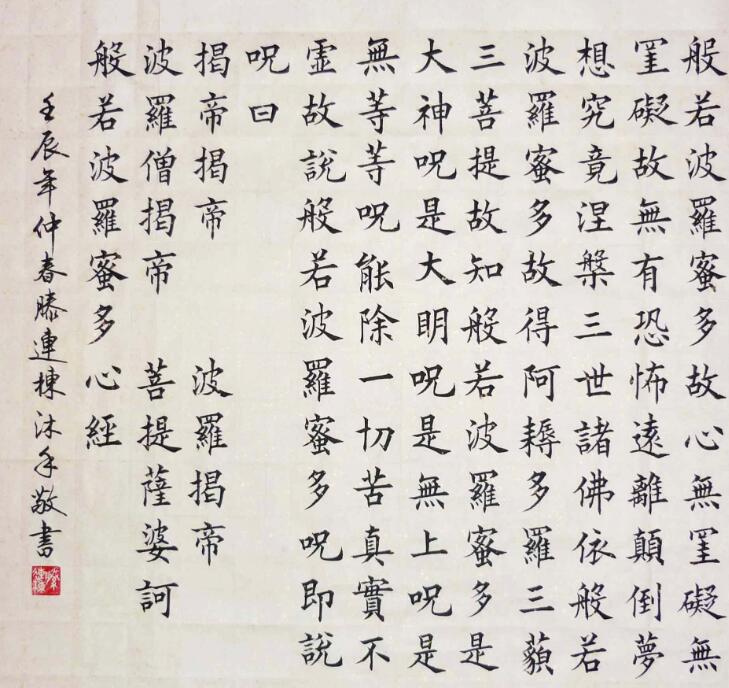 般若波羅蜜多故心無罣礙無
罣礙故無有恐怖遠離顛倒夢
想究竟涅槃三世諸佛依般若
波羅蜜多故得阿耨多羅三藐
三菩提故知般若波羅蜜多是
大神呪是大明呪是無上呪是
無等等呪能除一切苦真實不
虛故說般若波羅蜜多呪即說
呪曰
揭帝揭帝 波羅揭帝
波羅僧揭帝 菩提薩婆訶
般若波羅蜜多心經
壬辰年仲春滕連棟沐手敬書